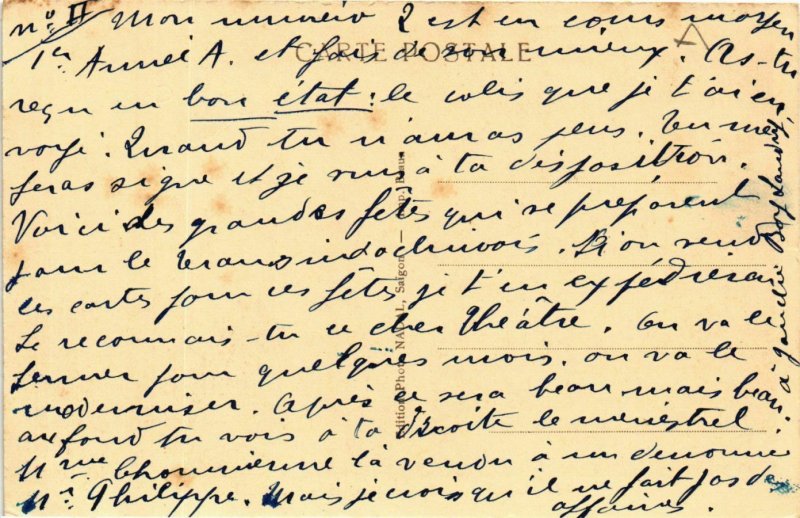 No II Mon numéro 2 est en cours moyen
1er Année A. et fais de mieux. As-tu
CARTE POSTALE
reçu en bon état : le colis que je t'ai en
voyé. Quand tu n'auras peus. Tu me
feras signe et je suis à ta disposition.
Voici des grandes fêtes qui se préparent
pour le Transindochinois. Si on vend
des cartes pour ces fêtes je t'en expédierai
Le reconnais-tu ce cher théâtre. On va le
fermer pour quelques mois. on va le
moderniser. Après ce sera beau mais beau.
au fond tu vois à ta droite le menestrel
Mme l'a vendu à un dénommé
Mr. Philippe. Mais je crois qu'il ne fait pas des
affaires.
à Landry
Photo NADAL, Saigon